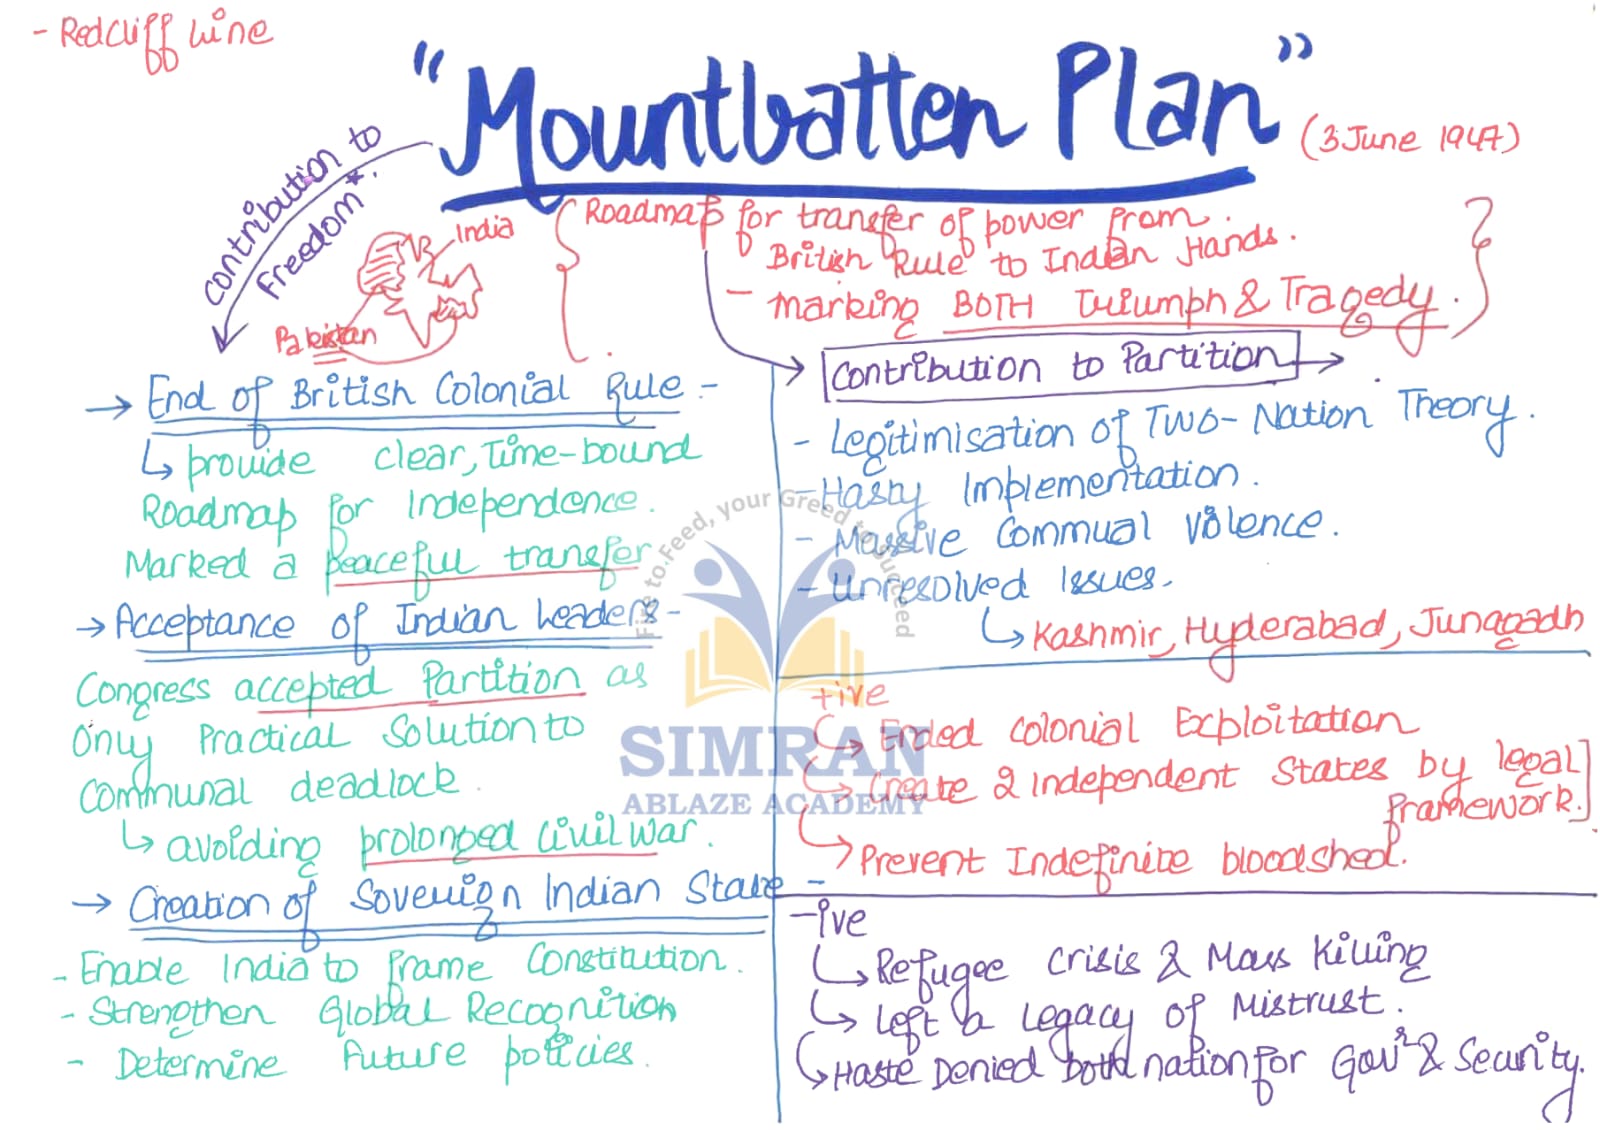 - Redcliff Line
"Mountbatten Plan"
(3 June 1947)
Contribution to
Freedom*.
India
Pakistan
Roadmap for transfer of power from
British Rule to Indian Hands.
- marking BOTH Triumph & Tragedy.
→ End of British Colonial Rule -
↳ provide clear, Time-bound
Roadmap for Independence.
Marked a peaceful transfer
→ Acceptance of Indian Leaders -
Congress accepted Partition as
Only Practical Solution to
Communal deadlock.
↳ avoiding prolonged Civil War.
→ Creation of Sovereign Indian State -
- Enable India to frame Constitution.
- Strengthen Global Recognition
- Determine Future policies.
→ Contribution to Partition →
- Legitimisation of Two-Nation Theory.
- Hasty Implementation.
- Massive Commual Violence.
- Unresolved Issues.
↳ Kashmir, Hyderabad, Junagadh
+ive
↳ Ended Colonial Exploitation
↳ Create 2 Independent States by legal
framework.]
↳ Prevent Indefinite bloodshed.
-ive
↳ Refugee Crisis & Mass Killing
↳ Left a Legacy of Mistrust.
↳ Haste Denied both nation for Gov² & Security.
Fire to Feed, your Greed to Succeed
SIMRAN
ABLAZE ACADEMY